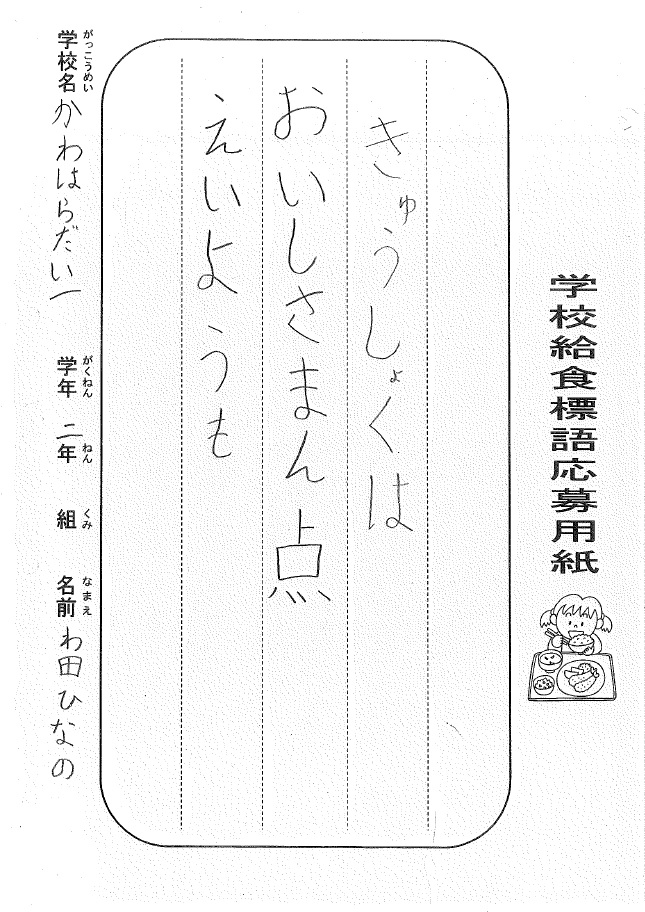 学校給食標語応募用紙
きゅうしょくは
おいしさまん点
えいようも
学校名 かわはらだい一 学年 二年 組 名前 わ田ひなの
がっこうめい がくねん ねん くみ なまえ